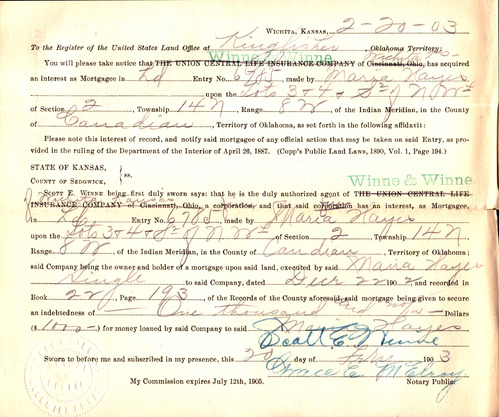 WICHITA, KANSAS, 2-20-03
To the Register of the United States Land Office at Kingfisher, Oklahoma Territory:
Winne & Winne Wichita Ks-
You will please take notice that THE UNION CENTRAL LIFE INSURANCE COMPANY of Cincinnati, Ohio, has acquired
an interest as Mortgagee in Hd Entry No. 6785, made by Maria Hayes
upon the Lots 3 & 4 & S½ of N W¼
of Section 2, Township 14 N, Range 8 W, of the Indian Meridian, in the County of
Canadian, Territory of Oklahoma, as set forth in the following affidavit:
Please note this interest of record, and notify said mortgagee of any official action that may be taken on said Entry, as provided
in the ruling of the Department of the Interior of April 26, 1887. (Copp's Public Land Laws, 1890, Vol. 1, Page 194.)
STATE OF KANSAS,
COUNTY OF SEDGWICK, } ss.
Winne & Winne
SCOTT E. WINNE being first duly sworn says: that he is the duly authorized agent of THE UNION CENTRAL LIFE
of Wichita Kansas
INSURANCE COMPANY of Cincinnati, Ohio, a corporation, and that said corporation has an interest, as Mortgagee,
in Hd Entry No. 6785 made by Maria Hayes
upon the Lots 3 & 4 & S½ of N W¼ of Section 2 Township 14 N
Range 8 W, of the Indian Meridian, in the County of Canadian, Territory of Oklahoma;
said Company being the owner and holder of a mortgage upon said land, executed by said Maria Hayes
Single to said Company, dated Decr 22 190 2, and recorded in
Book 22, Page 193, of the Records of the County aforesaid, said mortgage being given to secure
an indebtedness of One thousand and no/00 Dollars
($ 1000-) for money loaned by said Company to said Maria Hayes
Scott E Winne
Sworn to before me and subscribed in my presence, this 20 day of Feby 190 3
Grace E. McElroy
My Commission expires July 12th, 1905. Notary Public.